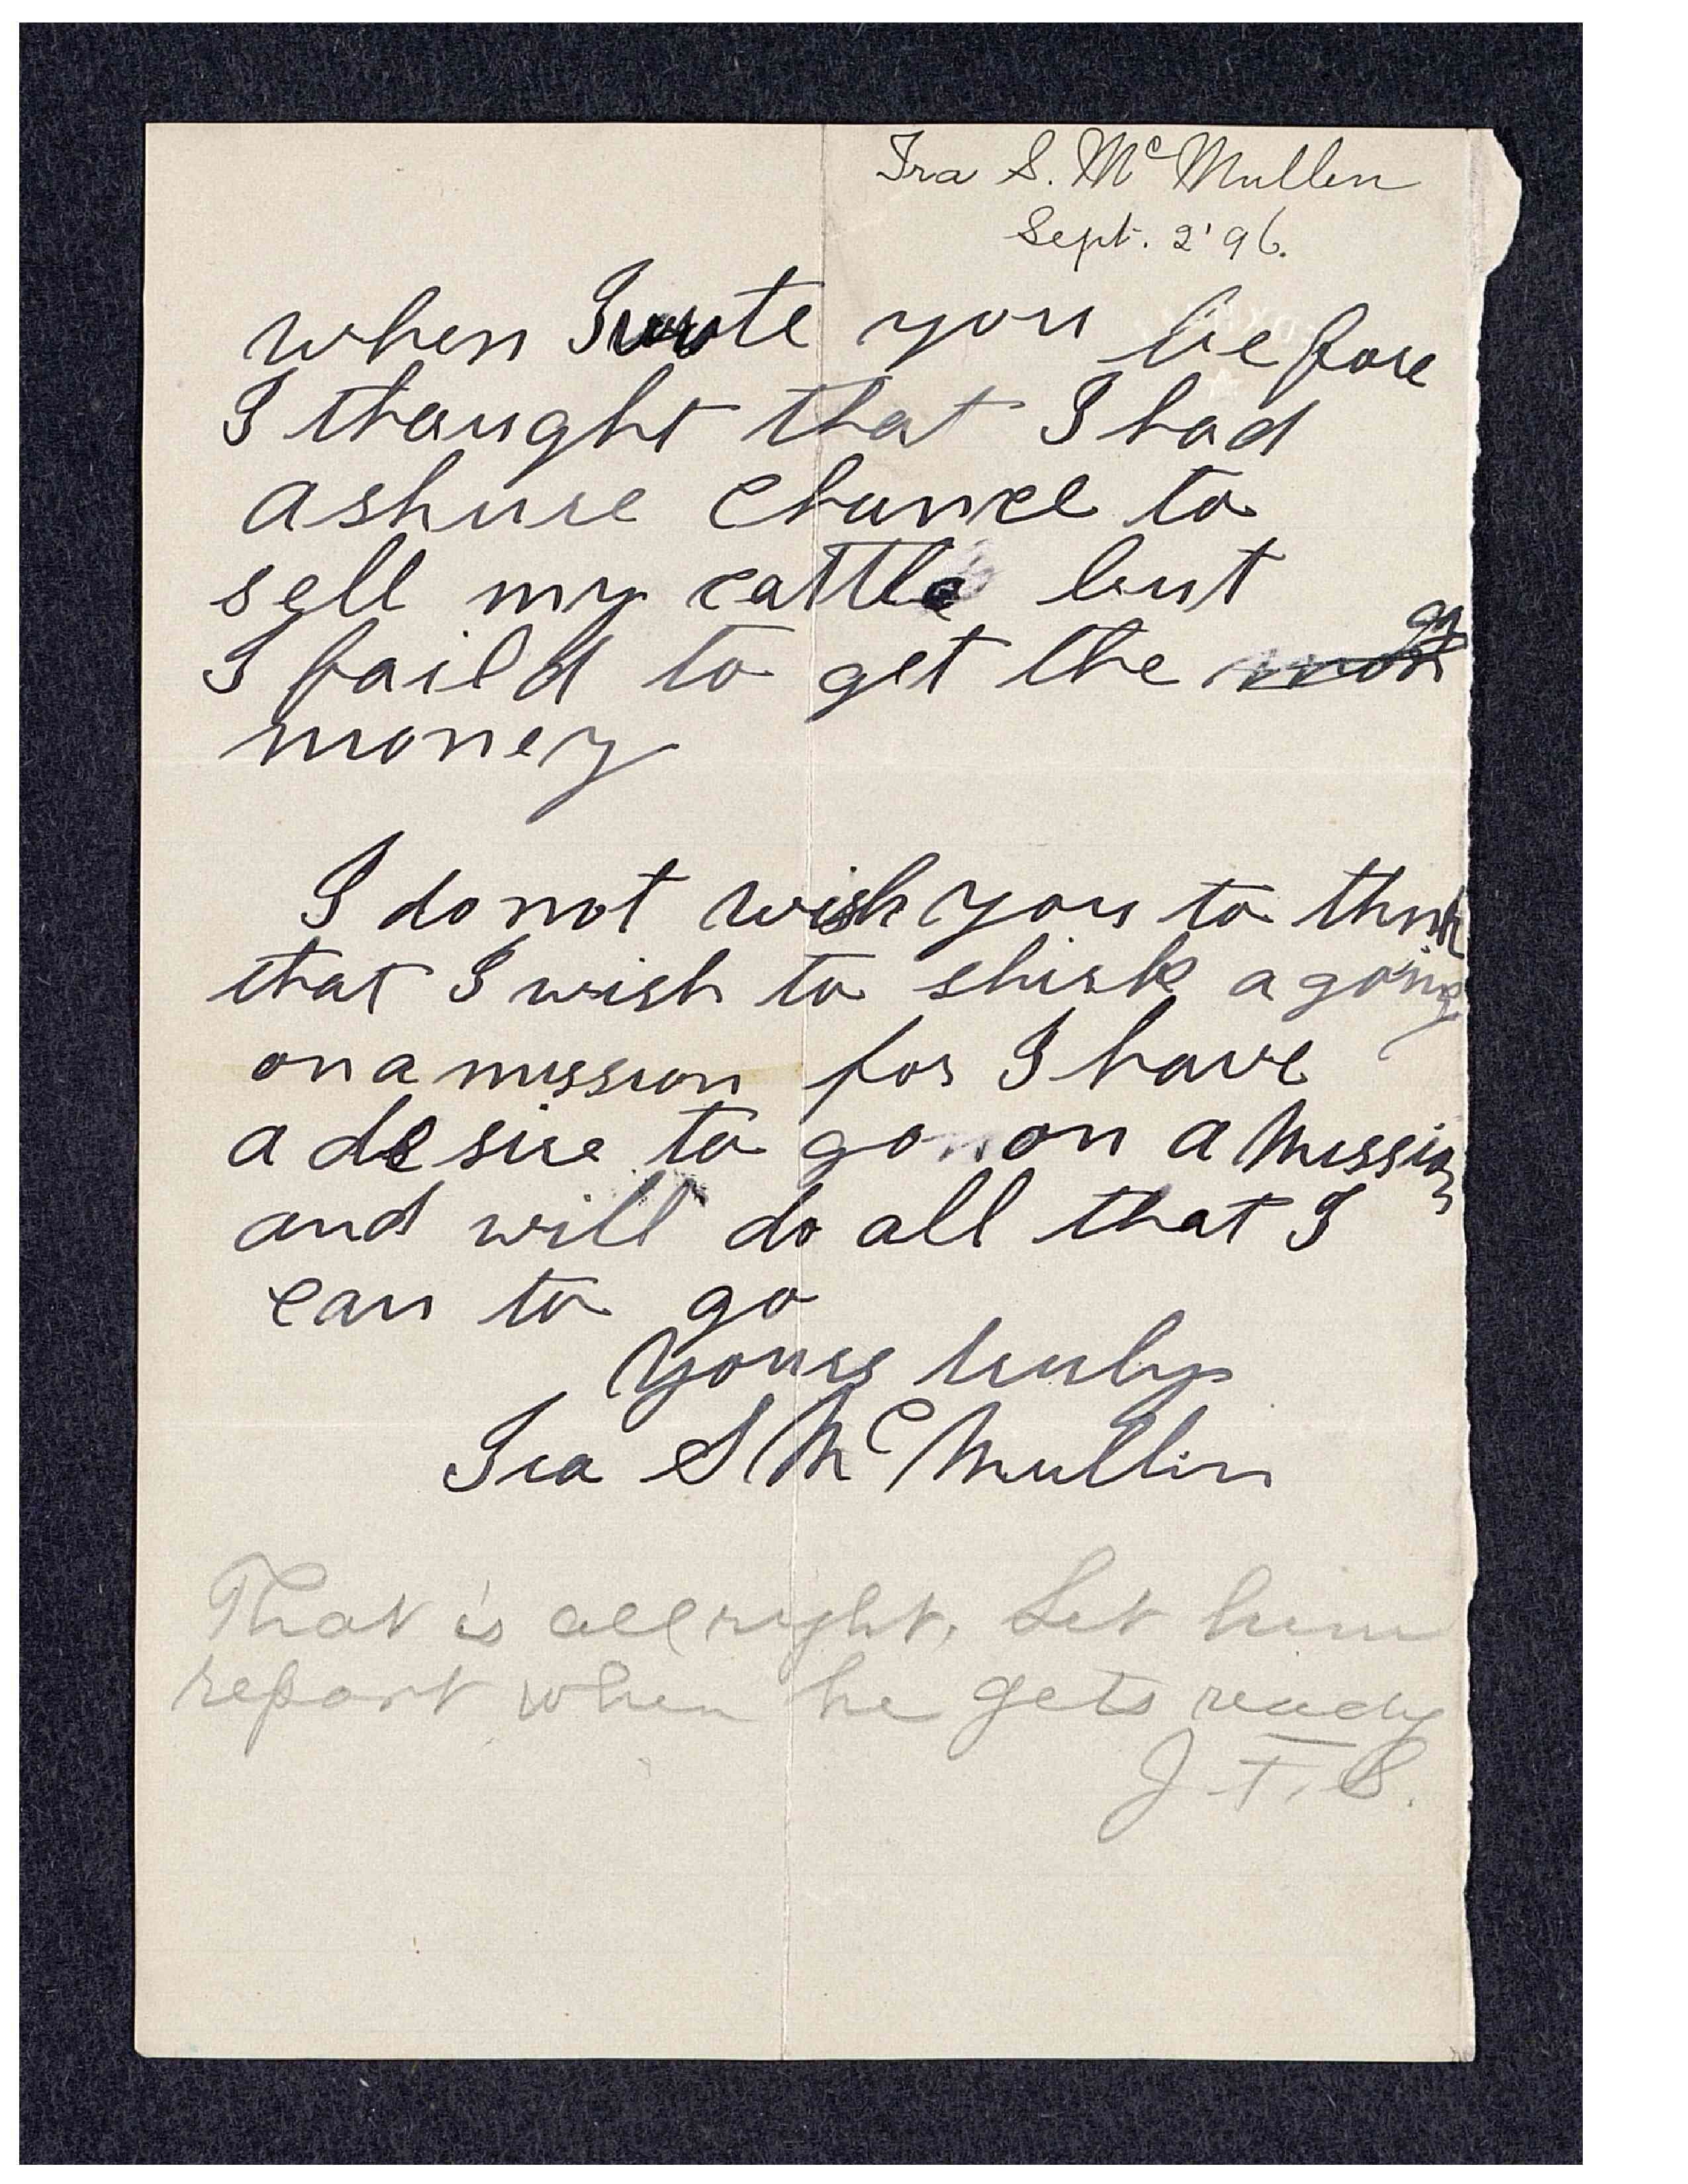 Ira S. McMullen
Sept. 2' 96.
when I wrote you before
I thought that I had
a shure chance to
sell my cattle but
I faild to get the
money
I do not wish you to think
that I wish to shirk a going
on a mission for I have
a desire to go on a Mission
and will do all that I
can to go
Yours truly
Ira S McMullin
That is all right. Let him
report when he gets ready
J. F. S.